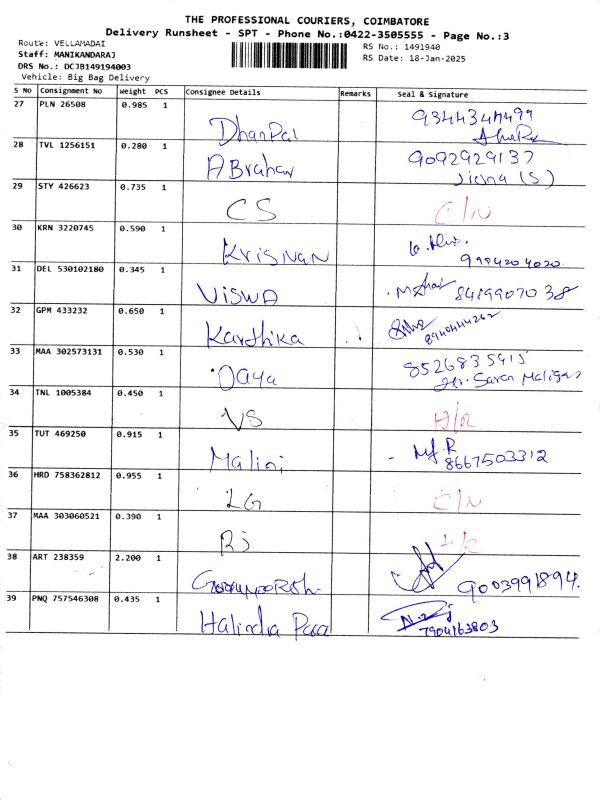 THE PROFESSIONAL COURIERS, COIMBATORE
Delivery Runsheet - SPT - Phone No.:0422-3505555 - Page No.:3
Route: VELLAMADAI
RS No.: 1491940
Staff: MANIKANDARAJ
RS Date: 18-Jan-2025
DRS No.: DCJB149194003
Vehicle: Big Bag Delivery
S No Consignment No Weight PCS Consignee Details Remarks Seal & Signature
27 PLN 26508 0.985 1 DhanPal 9344344499
28 TVL 1256151 0.280 1 ABrahar 9092929137
Jisha (S)
29 STY 426623 0.735 1 CS C/N
30 KRN 3220745 0.590 1 KRISNAN
9994204020
31 DEL 530102180 0.345 1 VISWA 8419907038
32 GPM 433232 0.650 1 Karthika
8940444262
33 MAA 302573131 0.530 1 Daya 8526835915
Saran Maligai
34 TNL 1005384 0.450 1 VS H/R
35 TUT 469250 0.915 1 Malini Mf.R
8667503312
36 HRD 758362812 0.955 1 LG C/N
37 MAA 303060521 0.390 1 RJ
38 ART 238359 2.200 1 9003991894
39 PNQ 757546308 0.435 1 Halindra Paa
7904163803